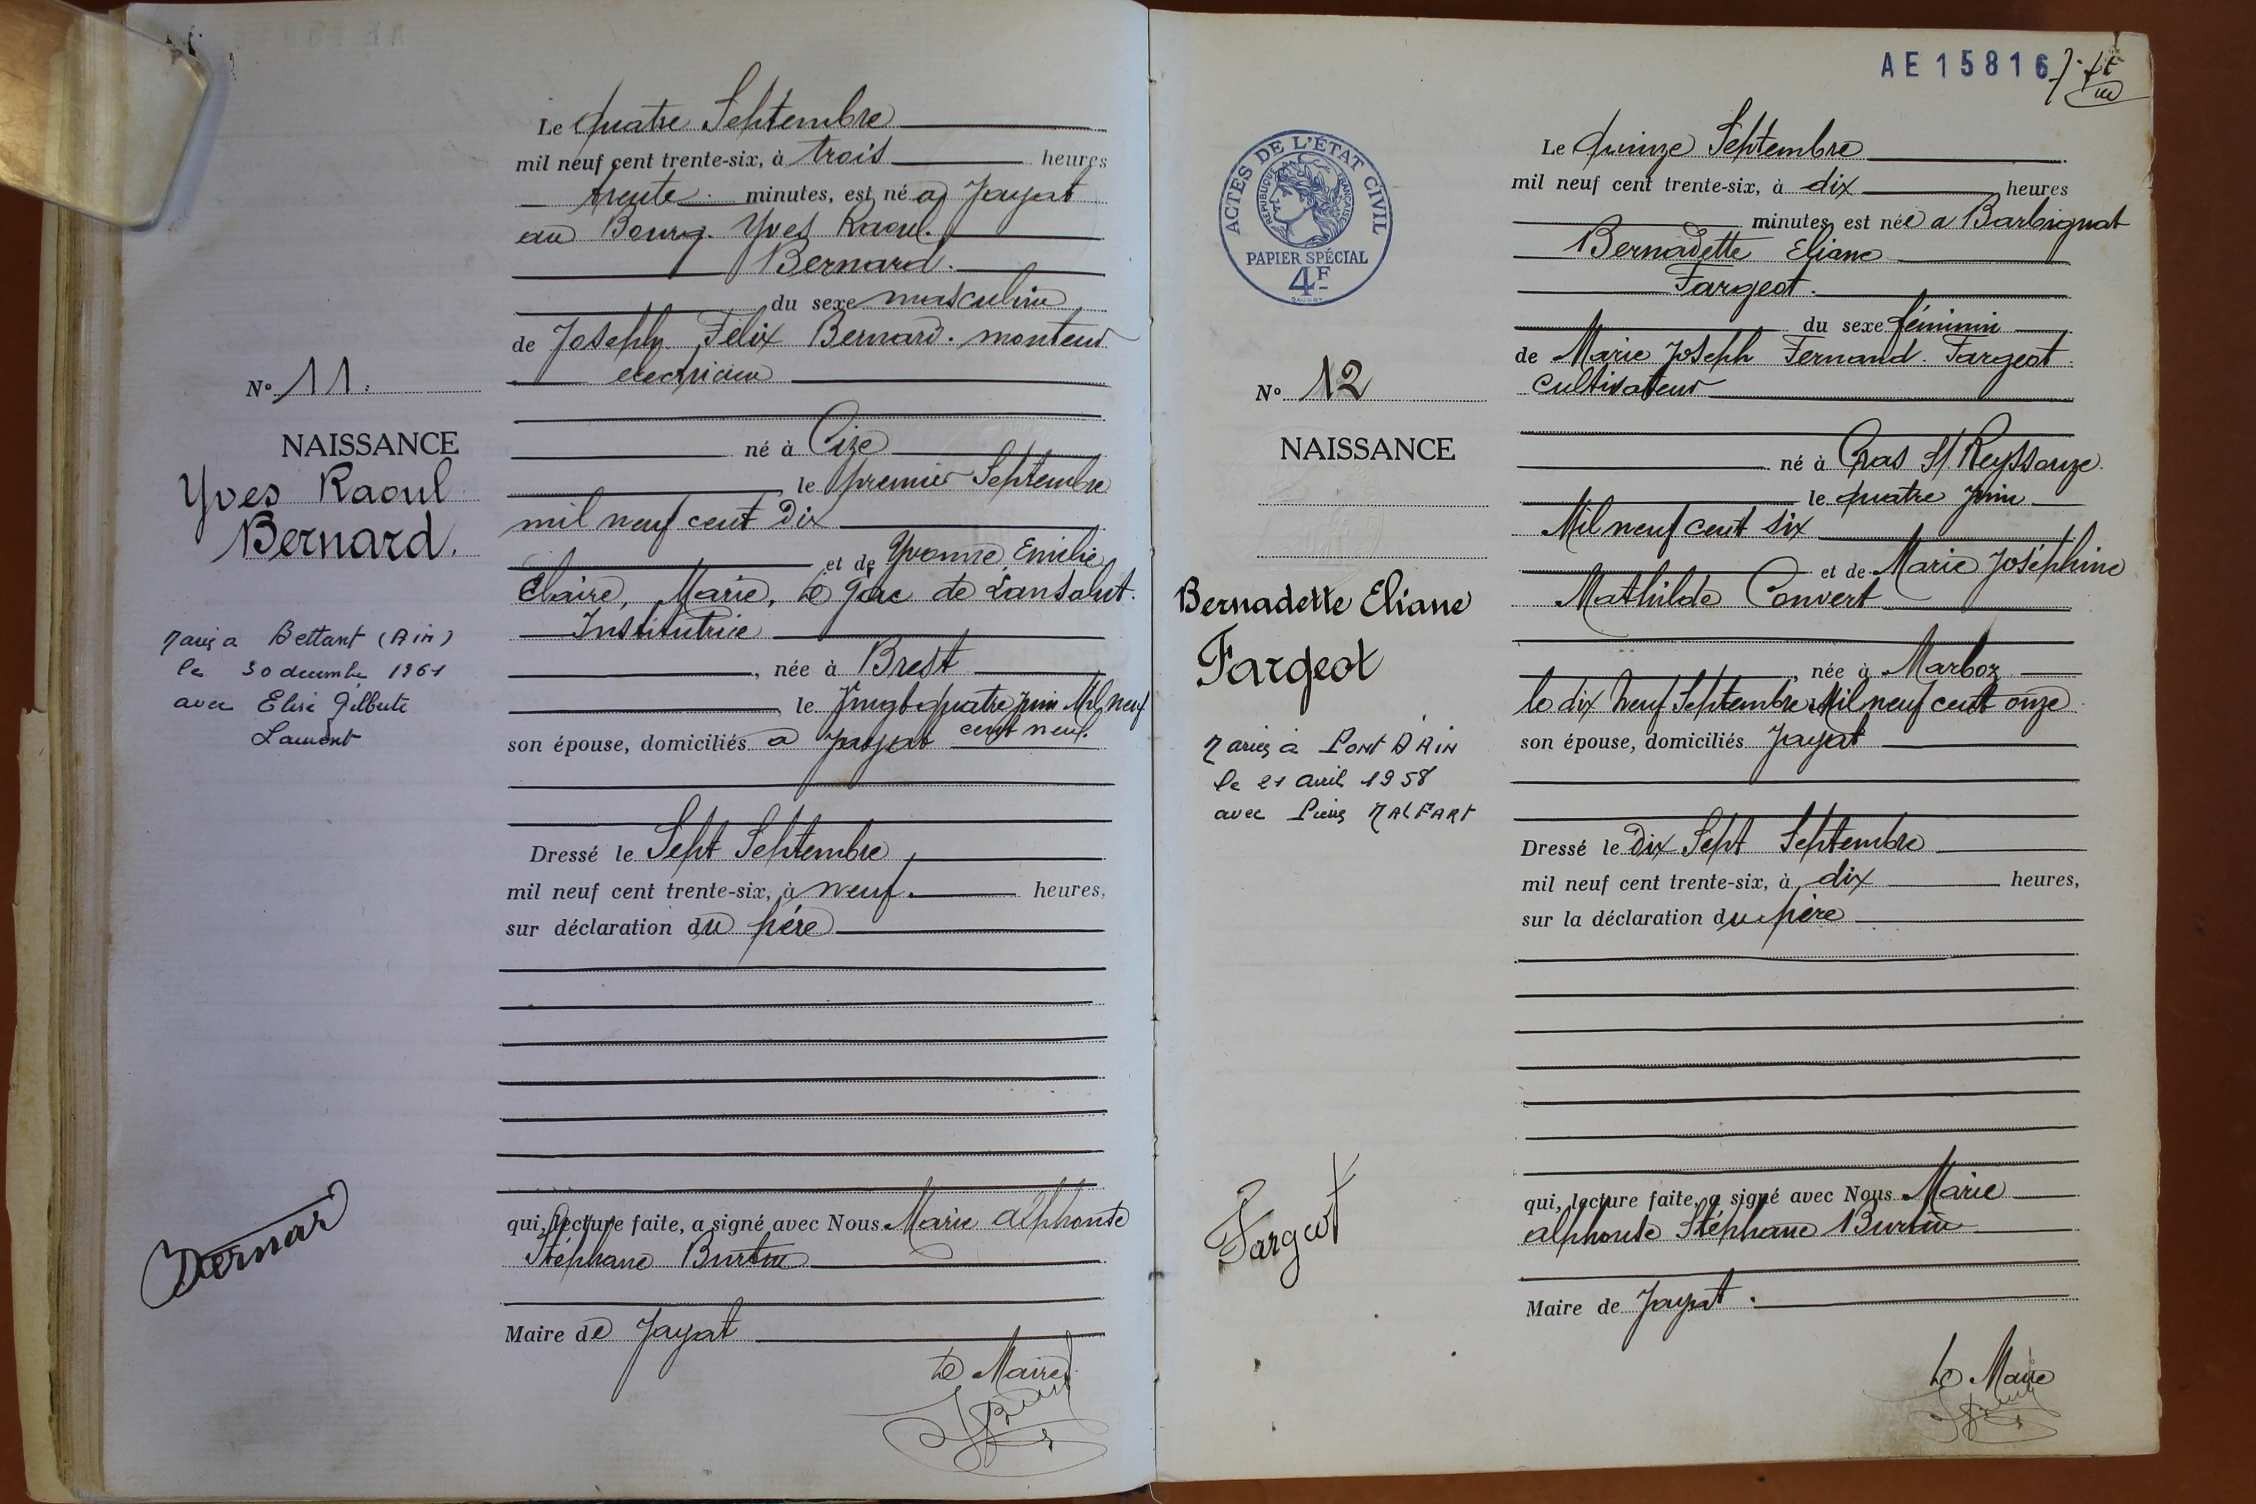 Le quatre Septembre
mil neuf cent trente-six, à trois heures
trente minutes, est né à Jayat
au Bourg. Yves Raoul.
Bernard.
du sexe masculin
de Joseph Félix Bernard. monteur
electricien
N° 11.
NAISSANCE
Yves Raoul
Bernard.
né à Cize
le premier Septembre
mil neuf cent Dix
et de Yvonne, Emilie,
Claire, Marie, Le Gac de Lansalut.
Institutrice
née à Brest
le Vingt quatre juin Mil neuf
cent neuf.
son épouse, domiciliés à Jayat
Marié a Bettant (Ain)
le 30 decembre 1961
avec Elise Gilberte
Laurent
Dressé le Sept Septembre
mil neuf cent trente-six, à neuf. heures,
sur déclaration du père
qui, lecture faite, a signé avec Nous Marie Alphonse
Stéphane Burtin
Maire de Jayat
Le Maire
Bernard
AE15816
ACTES DE L'ÉTAT CIVIL
RÉPUBLIQUE FRANÇAISE
PAPIER SPÉCIAL
4F
Le Quinze Septembre
mil neuf cent trente-six, à dix heures
minutes, est née a Barbignat
Bernadette Eliane
Fargeot.
du sexe féminin
de Marie Joseph Fernand Fargeot
cultivateur
N° 12
NAISSANCE
Bernadette Eliane
Fargeot
né à Cras S/ Reyssouze
le quatre juin
Mil neuf cent six
et de Marie Joséphine
Mathilde Convert
née à Marboz
le dix neuf Septembre Mil neuf cent onze
son épouse, domiciliés Jayat
Mariée à PONT D'AIN
le 21 avril 1958
avec Pierre MALFART
Dressé le Dix Sept Septembre
mil neuf cent trente-six, à dix heures,
sur la déclaration du père
qui, lecture faite, a signé avec Nous Marie
Alphonse Stéphane Burtin
Maire de Jayat.
Le Maire
Fargeot